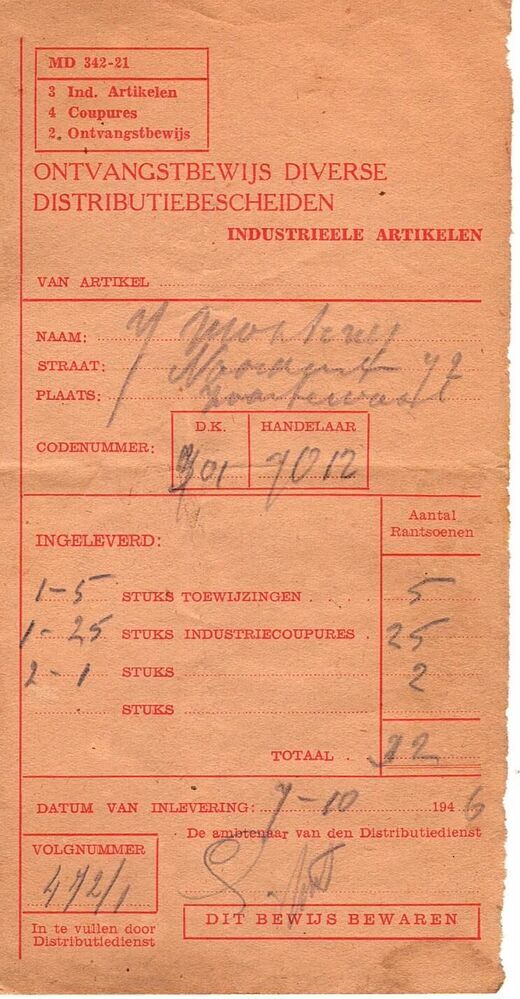 MD 342-21
3 Ind. Artikelen
4 Coupures
2. Ontvangstbewijs
ONTVANGSTBEWIJS DIVERSE
DISTRIBUTIEBESCHEIDEN
INDUSTRIEELE ARTIKELEN
VAN ARTIKEL
NAAM:
STRAAT: 72
PLAATS: Zwartewaal
D.K. HANDELAAR
CODENUMMER: 701 7012
Aantal
Rantsoenen
INGELEVERD:
1-5 STUKS TOEWIJZINGEN . . . . 5
1-25 STUKS INDUSTRIECOUPURES . 25
2-1 STUKS 2
STUKS
TOTAAL . 32
DATUM VAN INLEVERING: 7-10 1946
De ambtenaar van den Distributiedienst
VOLGNUMMER
472/1
In te vullen door
Distributiedienst
DIT BEWIJS BEWAREN